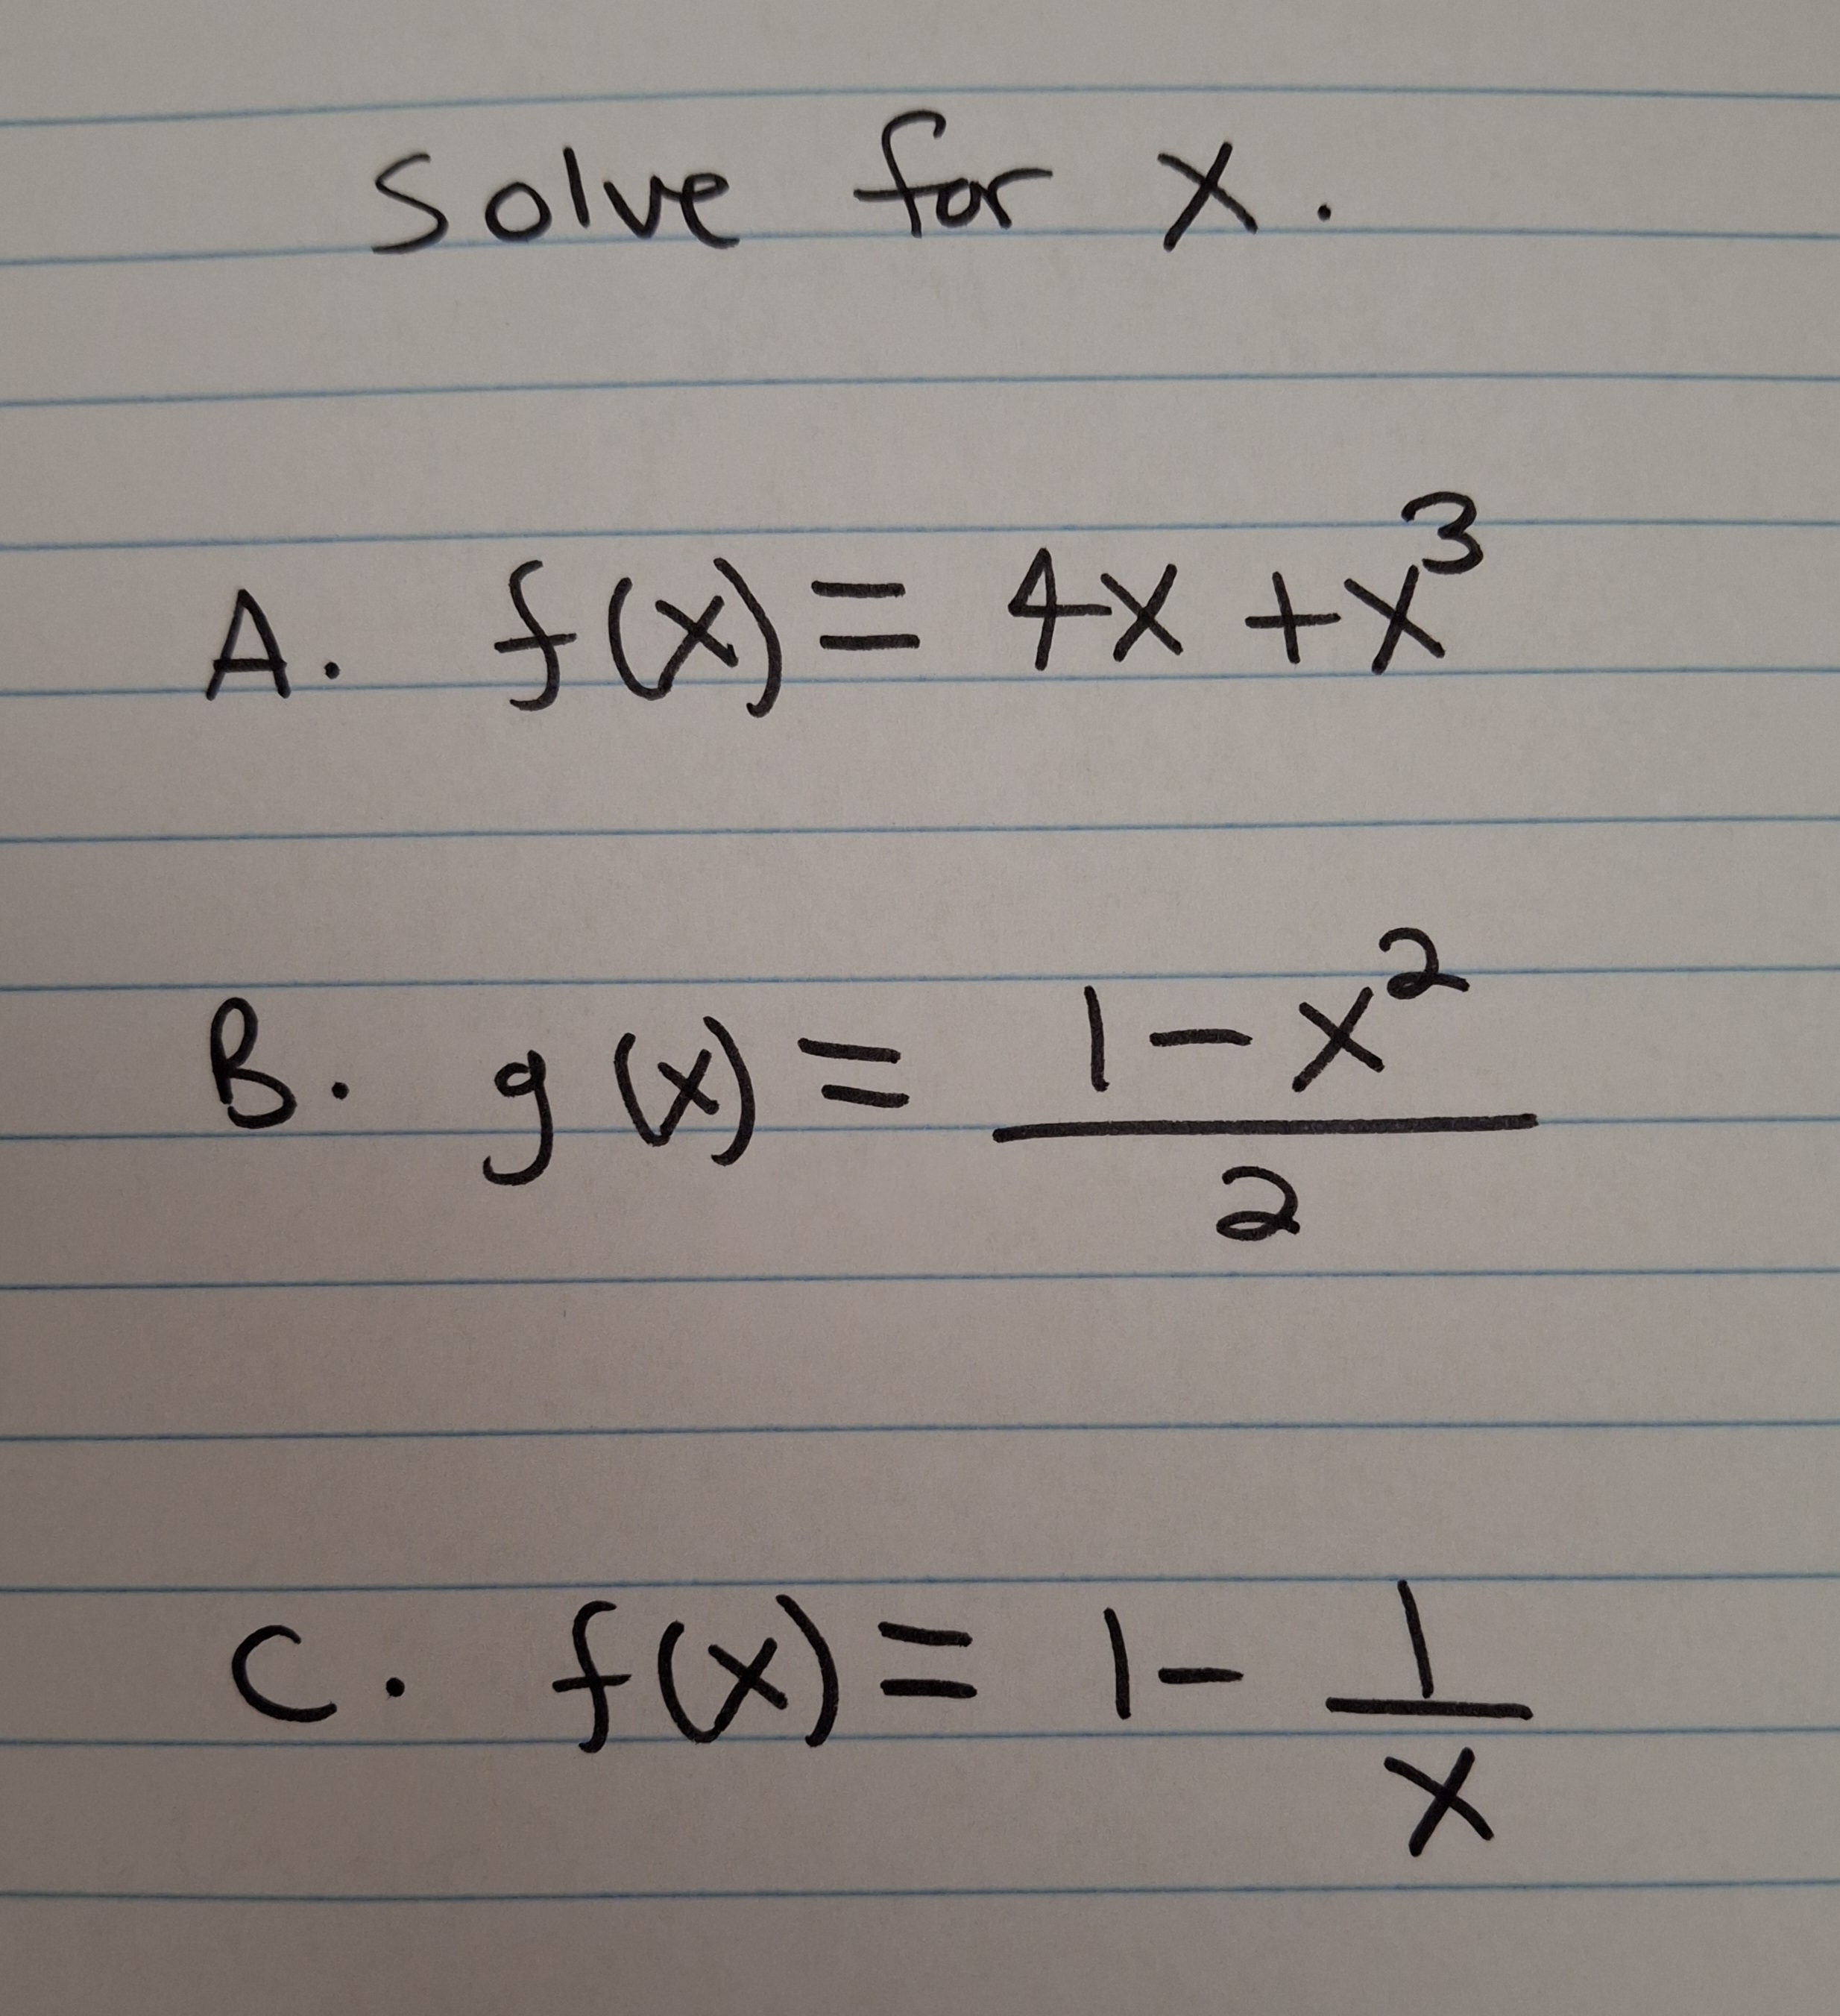 Solve for x.
A. f(x) = 4x + x³
B. g(x) = \frac{1 - x²}{2}
C. f(x) = 1 - \frac{1}{x}